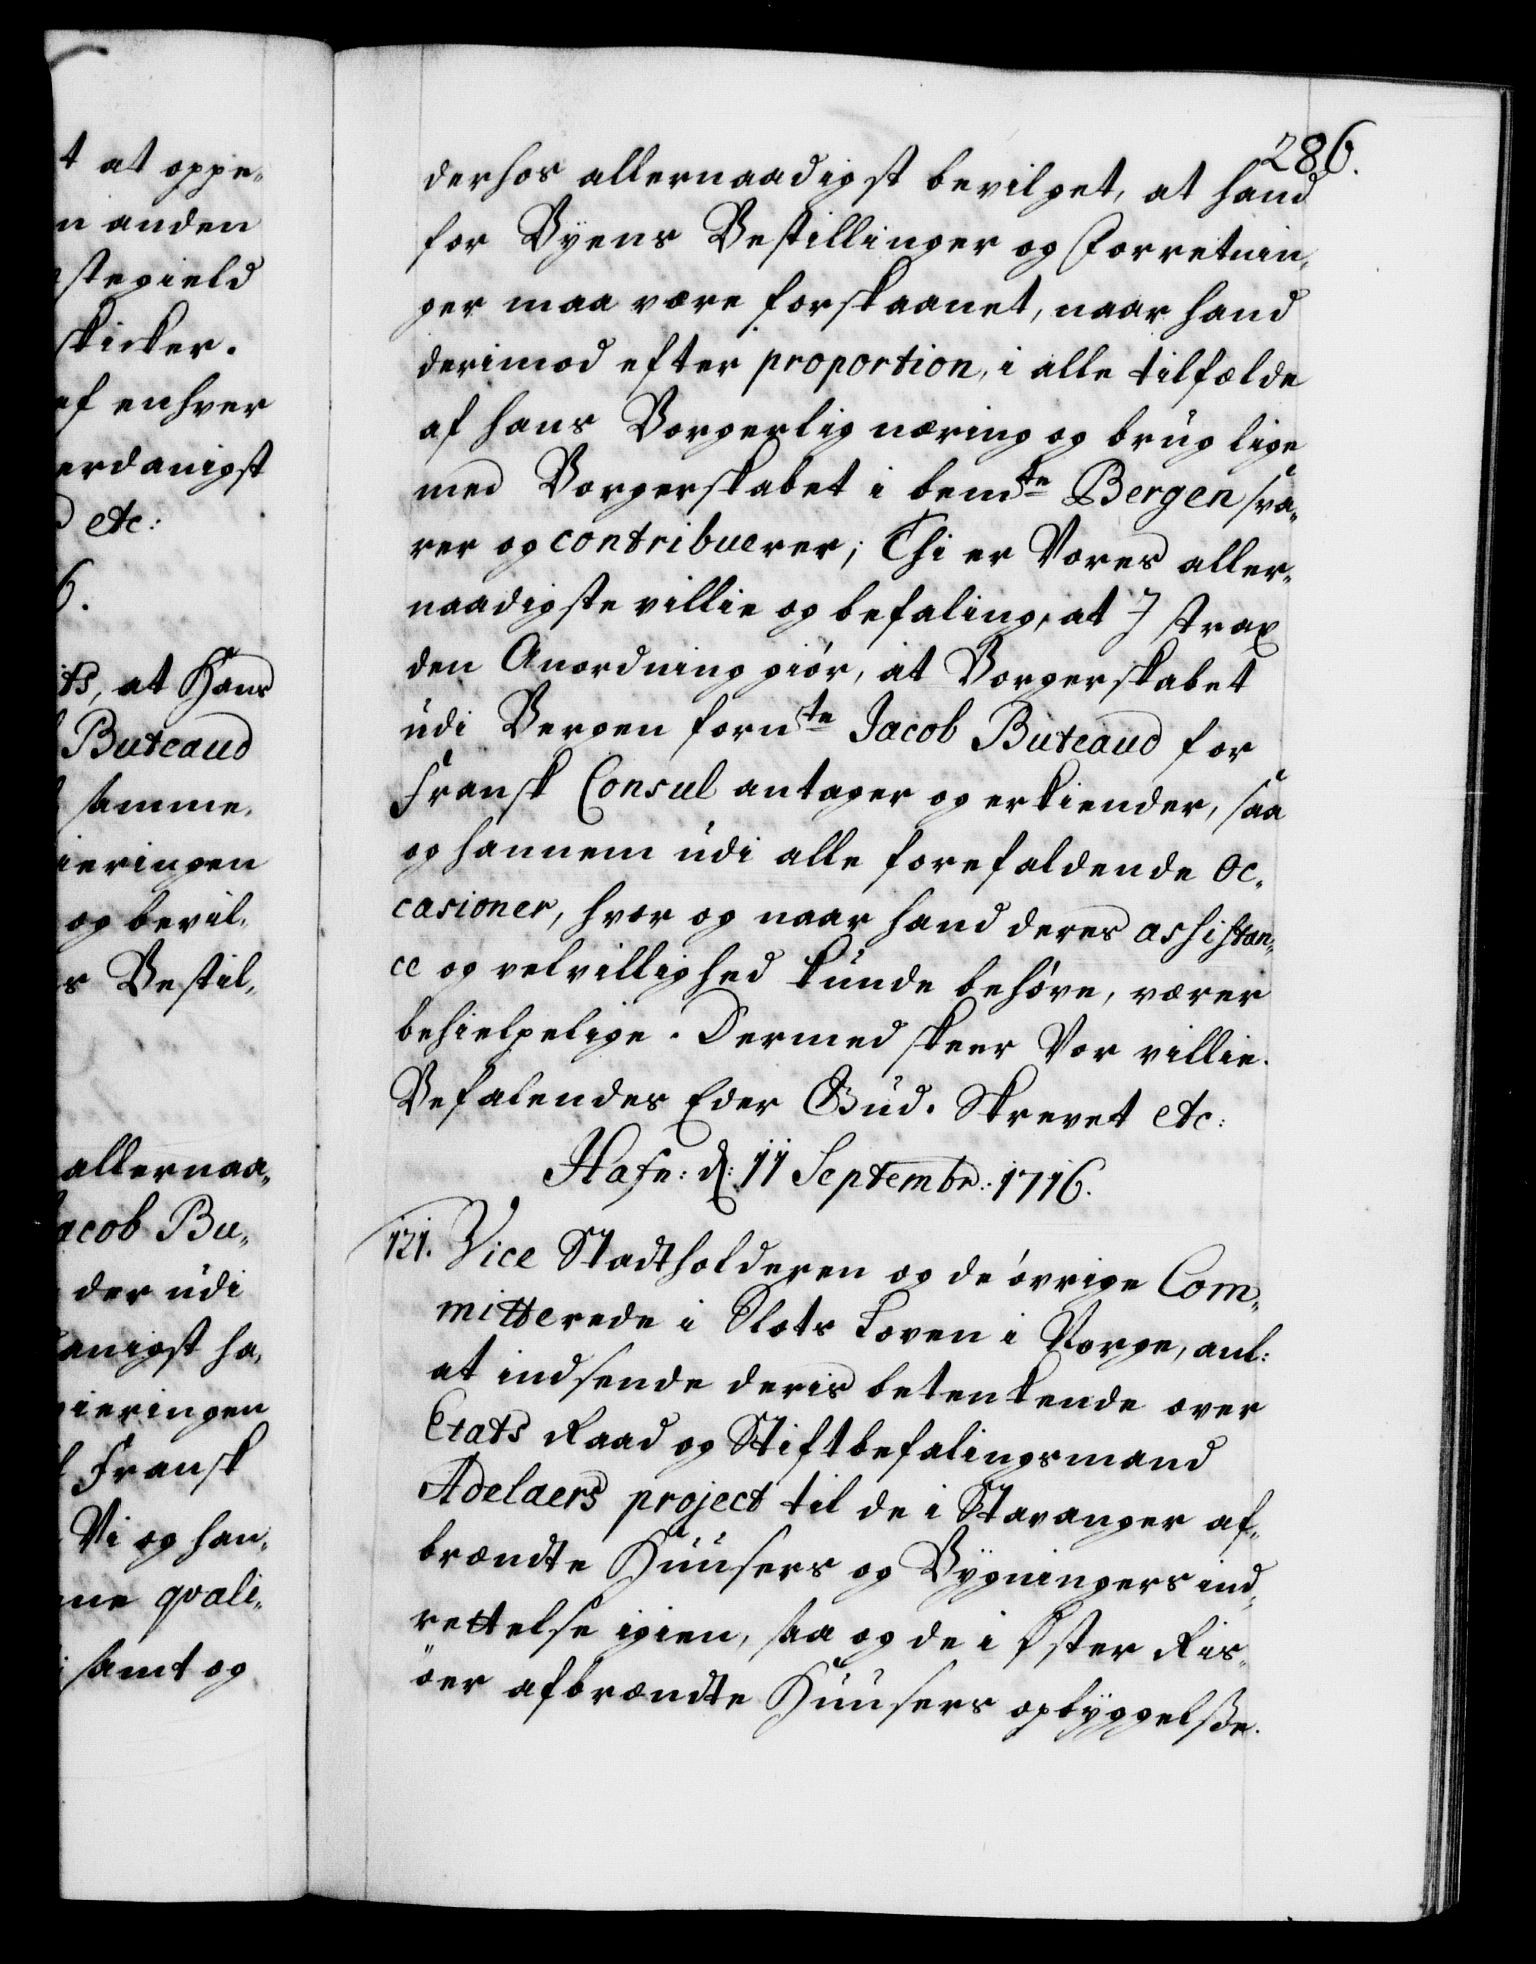 t at oppe-
n anden
stegield
skicker.
af enhver
erdanigst
etc:
6.
ts, at Hans
Buteaud
samme,
ieringen
og bevil-
s Bestil-
allernaa-
acob Bu-
der udi
danigst ha-
gieringen
Fransk
Vi og han-
ne qvali-
samt og
286.
derhos allernaadigst bevilget, at hand
for Byens Bestillinger og Forretnin-
ger maa være forskaanet, naar hand
derimod efter proportion, i alle tilfælde
af hans Borgerlig næring og brug lige
med Borgerskabet i bemte Bergen sva-
rer og contribuerer; Thi er Vores aller-
naadigste villie og befaling, at I strax
den Anordning giör, at Borgerskabet
udi Bergen fornte Jacob Buteaud for
Fransk Consul antager og erkiender, saa
og hannem udi alle forefaldende oc-
casioner, hvor og naar hand deres assistan-
ce og velvillighed kunde behöve, værer
behielpelige. Dermed skeer Vor villie.
Befalendes Eder Gud. Skrevet etc:
Hafn: d: 11 Septembr: 1716.
121. Vice Stadtholderen og de övrige Com-
mitterede i Slots Loven i Norge, anl:
at indsende deris betenkende over
Etats Raad og Stiftbefalingsmand
Adelaers project til de i Stavanger af-
brændte Huusers og Bygningers ind-
rettelse igien, saa og de i Öster Riis-
öer afbrændte Huusers opbyggelsze.